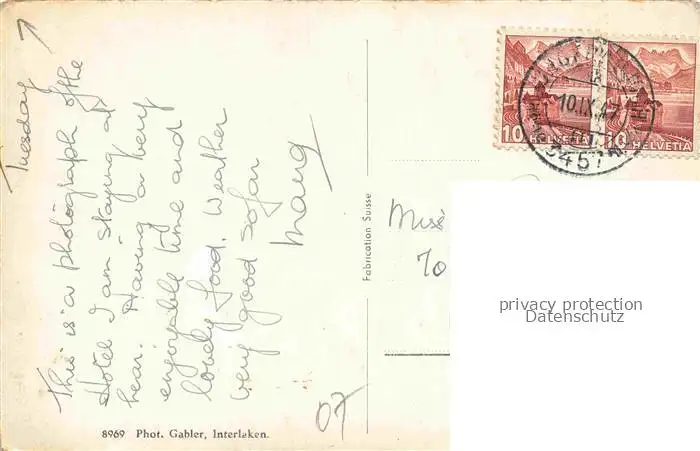 Tuesday
This is a photograph of the
Hotel I am staying at
hear. Having a very
enjoyable time and
lovely food. Weather
very good sofar
07
8969 Phot. Gabler, Interlaken.
Fabrication Suisse
10 HELVETIA
10 HELVETIA
10.IX.47
3457
Miss
70
privacy protection
Datenschutz